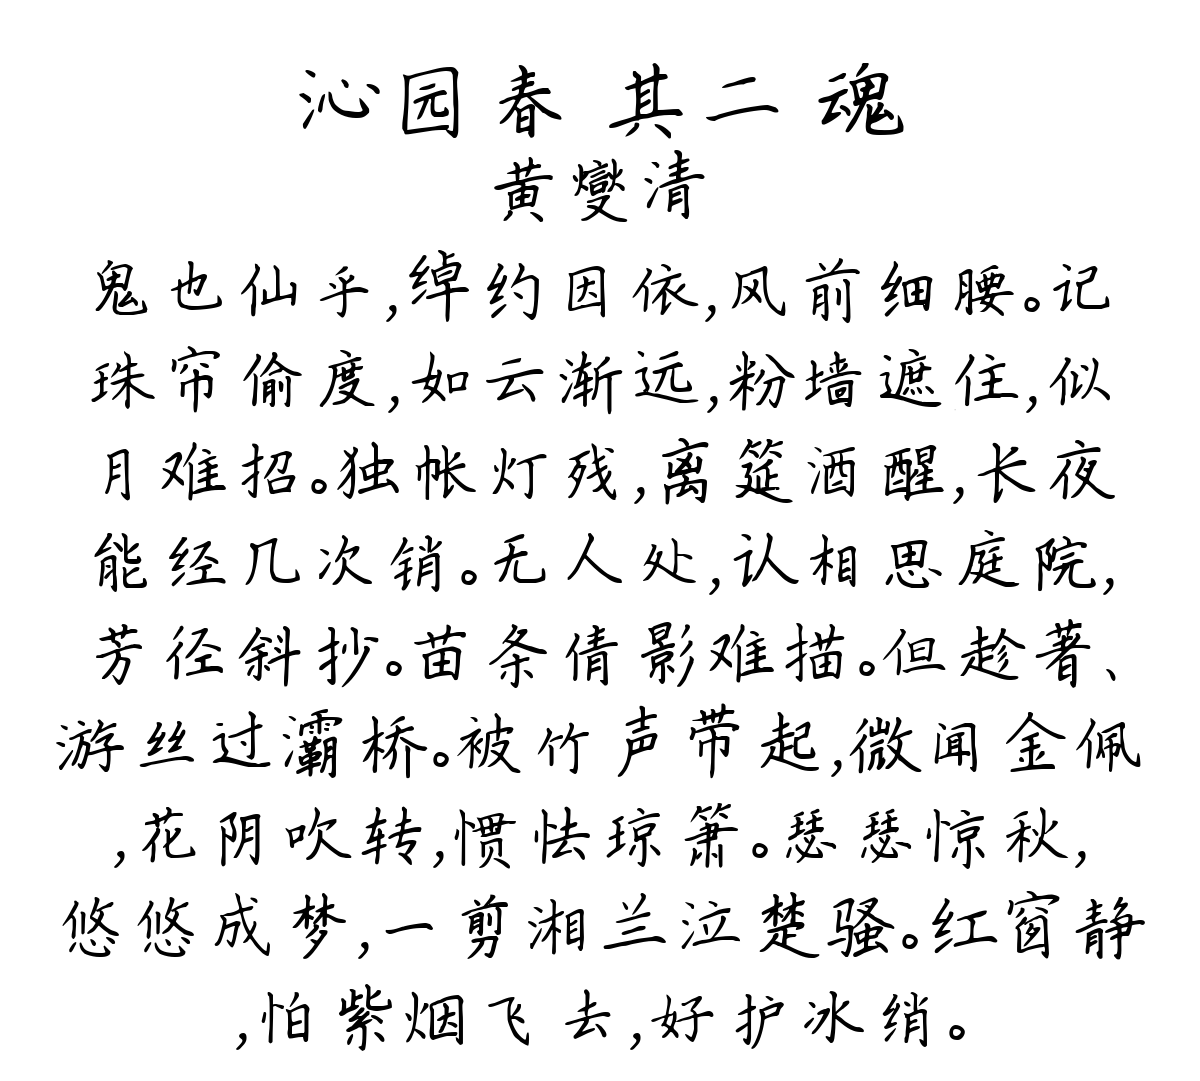 沁园春 其二 魂
黄燮清
鬼也仙乎,绰约因依,风前细腰。记
珠帘偷度,如云渐远,粉墙遮住,似
月难招。独帐灯残,离筵酒醒,长夜
能经几次销。无人处,认相思庭院,
芳径斜抄。苗条倩影难描。但趁著、
游丝过灞桥。被竹声带起,微闻金佩
,花阴吹转,惯怯琼箫。瑟瑟惊秋,
悠悠成梦,一剪湘兰泣楚骚。红窗静
,怕紫烟飞去,好护冰绡。